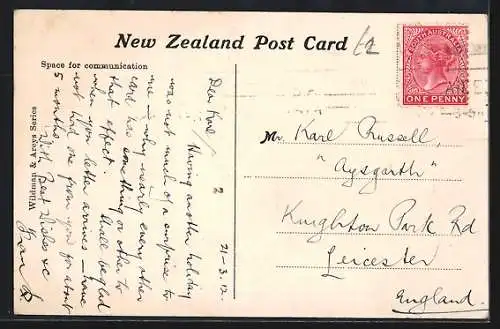 New Zealand Post Card
1/2
Space for communication
SOUTH AUSTRALIA
ONE PENNY
Wildman & Areys Series
2
21-3-12.
Dear Karl/
Having another holiday
was not much of a surprise to
me - why nearly every other
card has something or other to
that effect. Shall be glad
when your letter arrives - have
not had one from you for about
5 months.
With Best Wishes &c
Mr Karl Russell,
"Aysgarth"
Knighton Park Rd
Leicester
England.